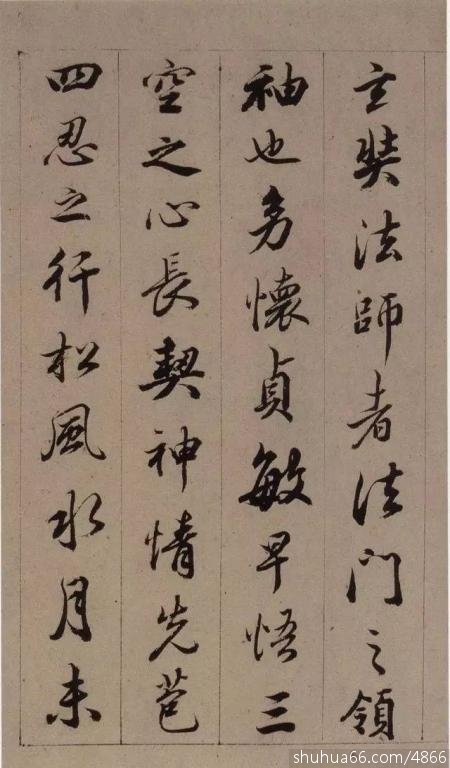 玄奘法師者法門之領
袖也幼懷貞敏早悟三
空之心長契神情先苞
四忍之行松風水月未
shuhua66.com/4866